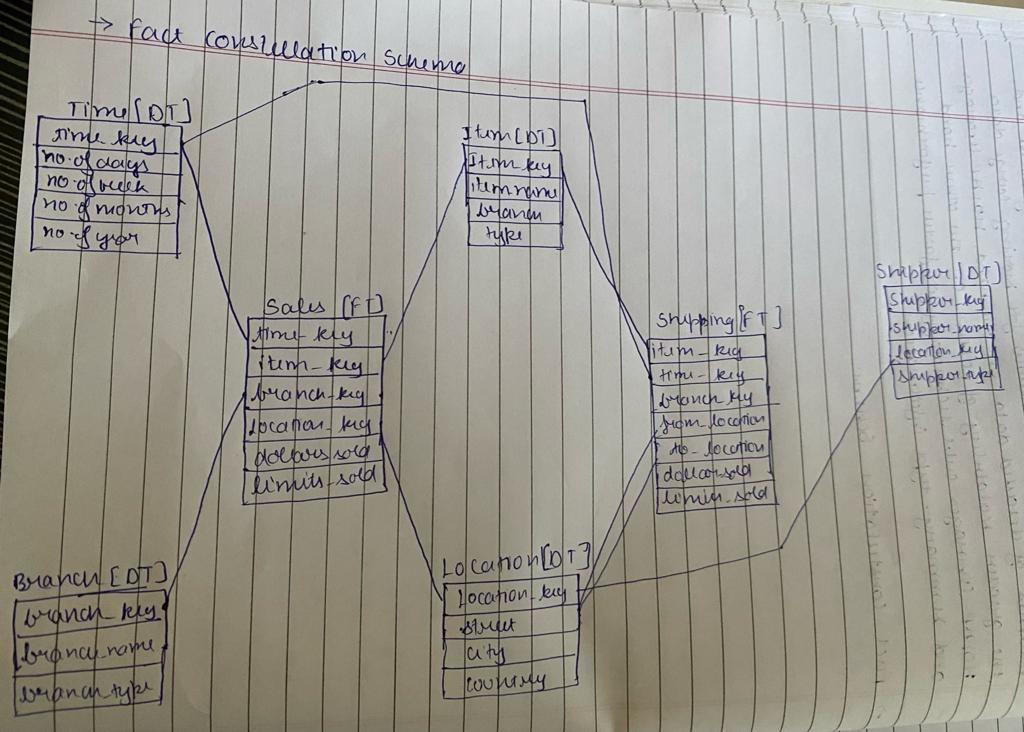 → Fact Consillation Schema
Time [DT]
time_key
no. of days
no. of week
no. of months
no. of year
Item [DT]
Item_key
item name
branch
type
Sales [FT]
time_key
item_key
branch_key
location_key
dollars sold
limits_sold
Shipping [FT]
item_key
time_key
branch_key
from_location
to_location
dollar sold
limits_sold
Shipper [DT]
Shipper_key
shipper_name
location_key
shipper_type
Branch [DT]
branch_key
branch_name
branch_type
Location [DT]
location_key
street
city
country